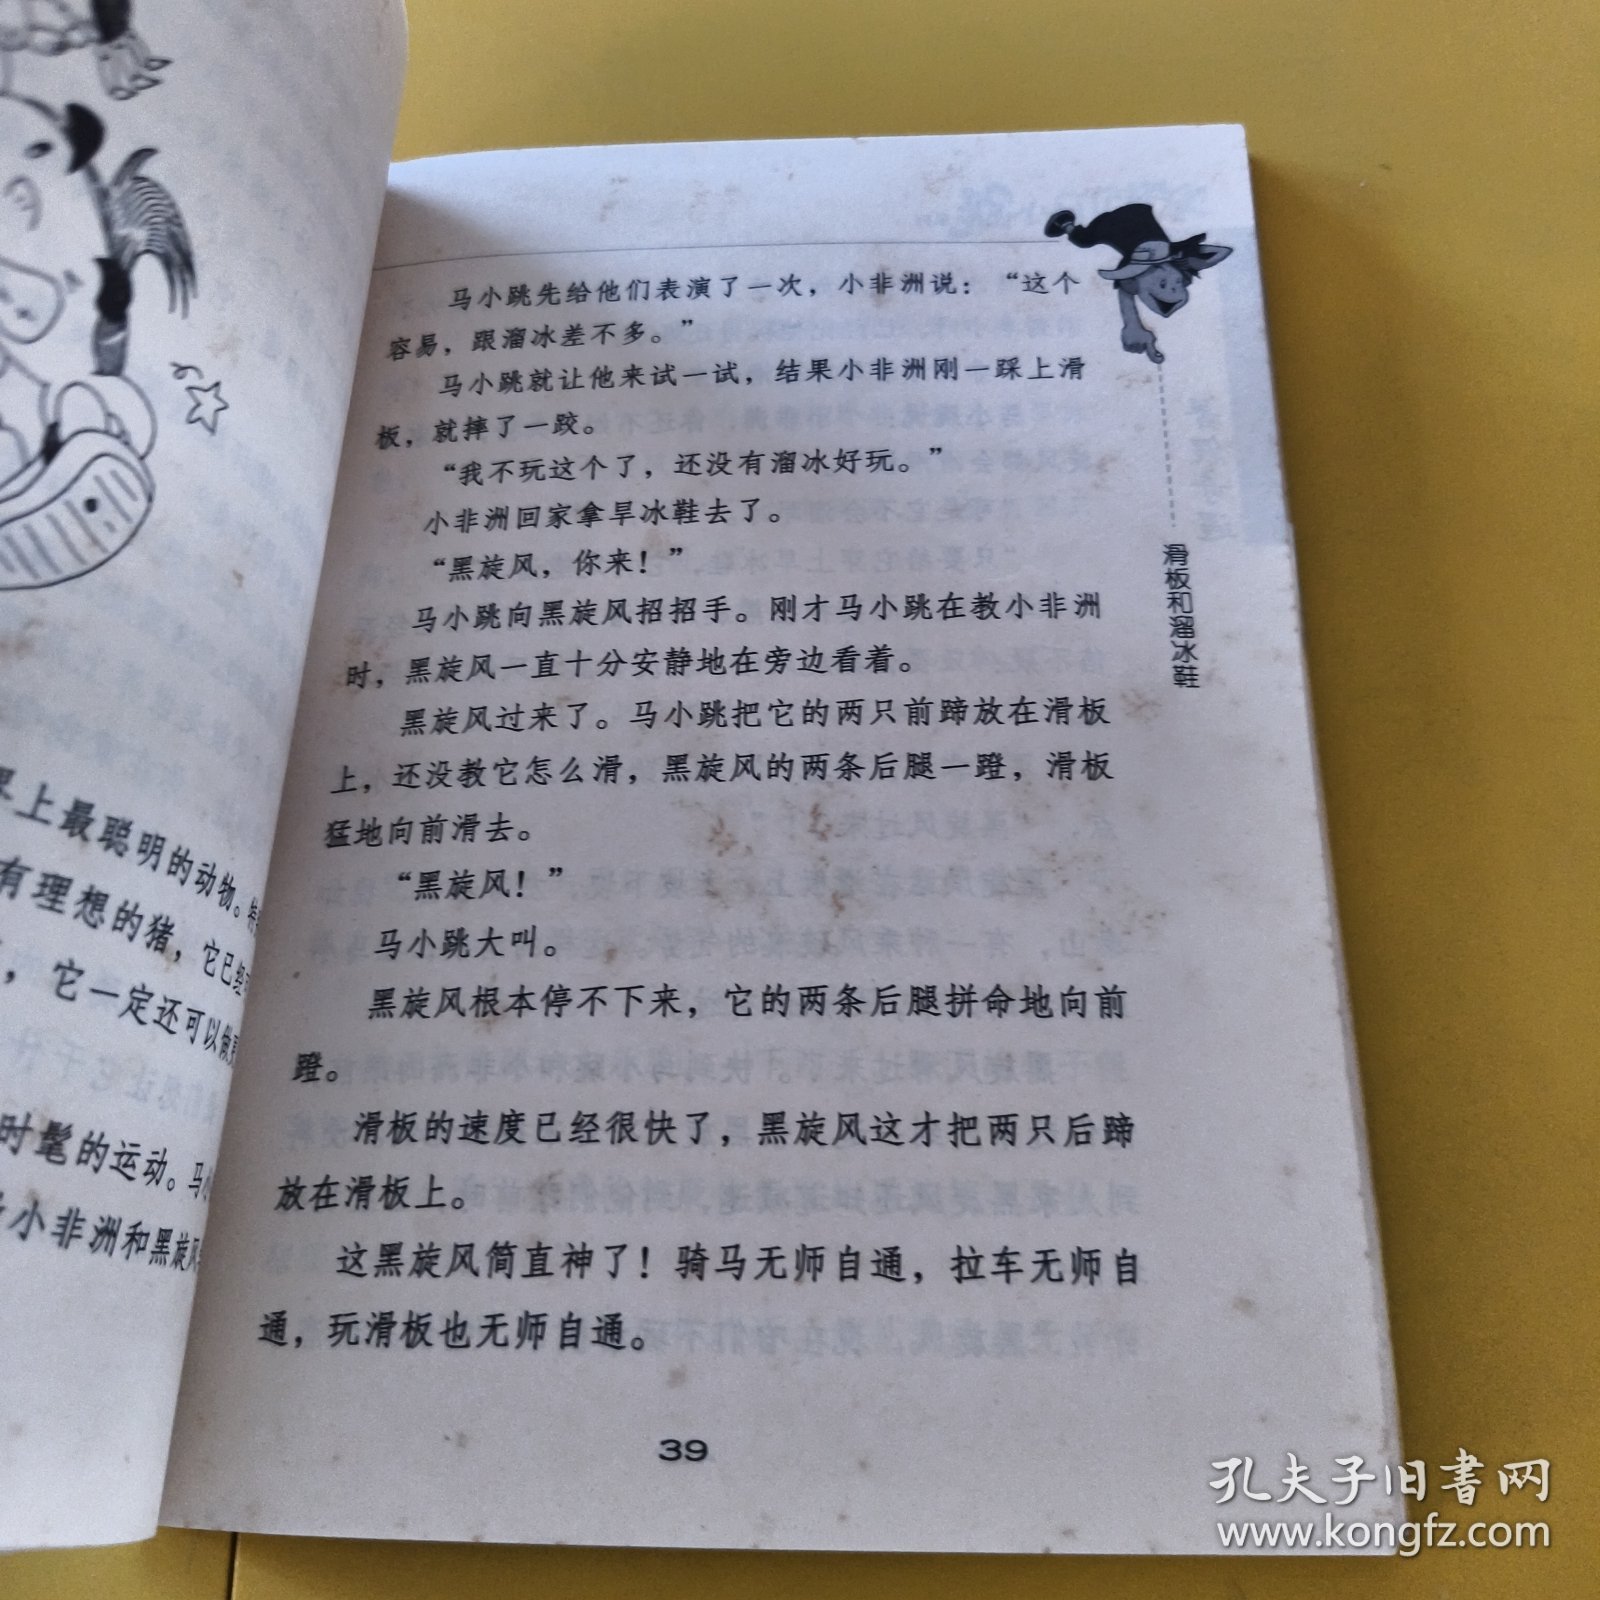 界上最聪明的动物。特
有理想的猪，它已经
，它一定还可以做
时髦的运动。马小
小非洲和黑旋风
马小跳先给他们表演了一次，小非洲说：“这个
容易，跟溜冰差不多。”
马小跳就让他来试一试，结果小非洲刚一踩上滑
板，就摔了一跤。
“我不玩这个了，还没有溜冰好玩。”
小非洲回家拿旱冰鞋去了。
“黑旋风，你来！”
马小跳向黑旋风招招手。刚才马小跳在教小非洲
时，黑旋风一直十分安静地在旁边看着。
黑旋风过来了。马小跳把它的两只前蹄放在滑板
上，还没教它怎么滑，黑旋风的两条后腿一蹬，滑板
猛地向前滑去。
“黑旋风！”
马小跳大叫。
黑旋风根本停不下来，它的两条后腿拼命地向前
蹬。
滑板的速度已经很快了，黑旋风这才把两只后蹄
放在滑板上。
这黑旋风简直神了！骑马无师自通，拉车无师自
通，玩滑板也无师自通。
滑板和溜冰鞋
39
孔夫子旧书网
www.kongfz.com